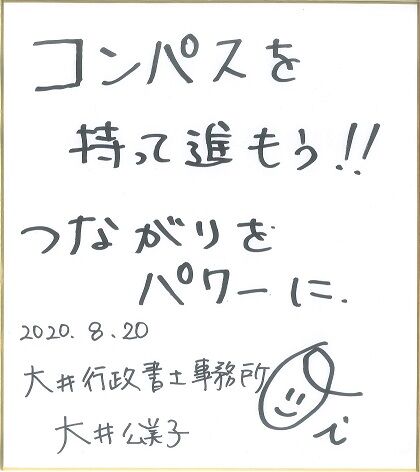 コンパスを
持って進もう!!
つながりを
パワーに.
2020.8.20
大井行政書士事務所
大井公美子
i